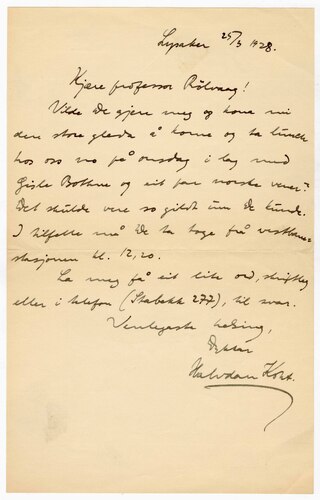 Lysaker 25/3 1928.
Kjære professor Rölvaag!
Vilde De gjere meg og kona mi
den store gleda å koma og ta lunch
hos oss no på onsdag i lag med
Gisle Bothne og eit par norske vener?
Det skulde vere so gildt um De kunde.
I tilfelle må De ta toge frå vestbane-
stasjonen kl. 12,20.
La meg få eit lite ord, skriftleg
eller i telefon (Stabekk 277), til svar.
Venlegaste helsing,
Dykkar
Halvdan Koht.